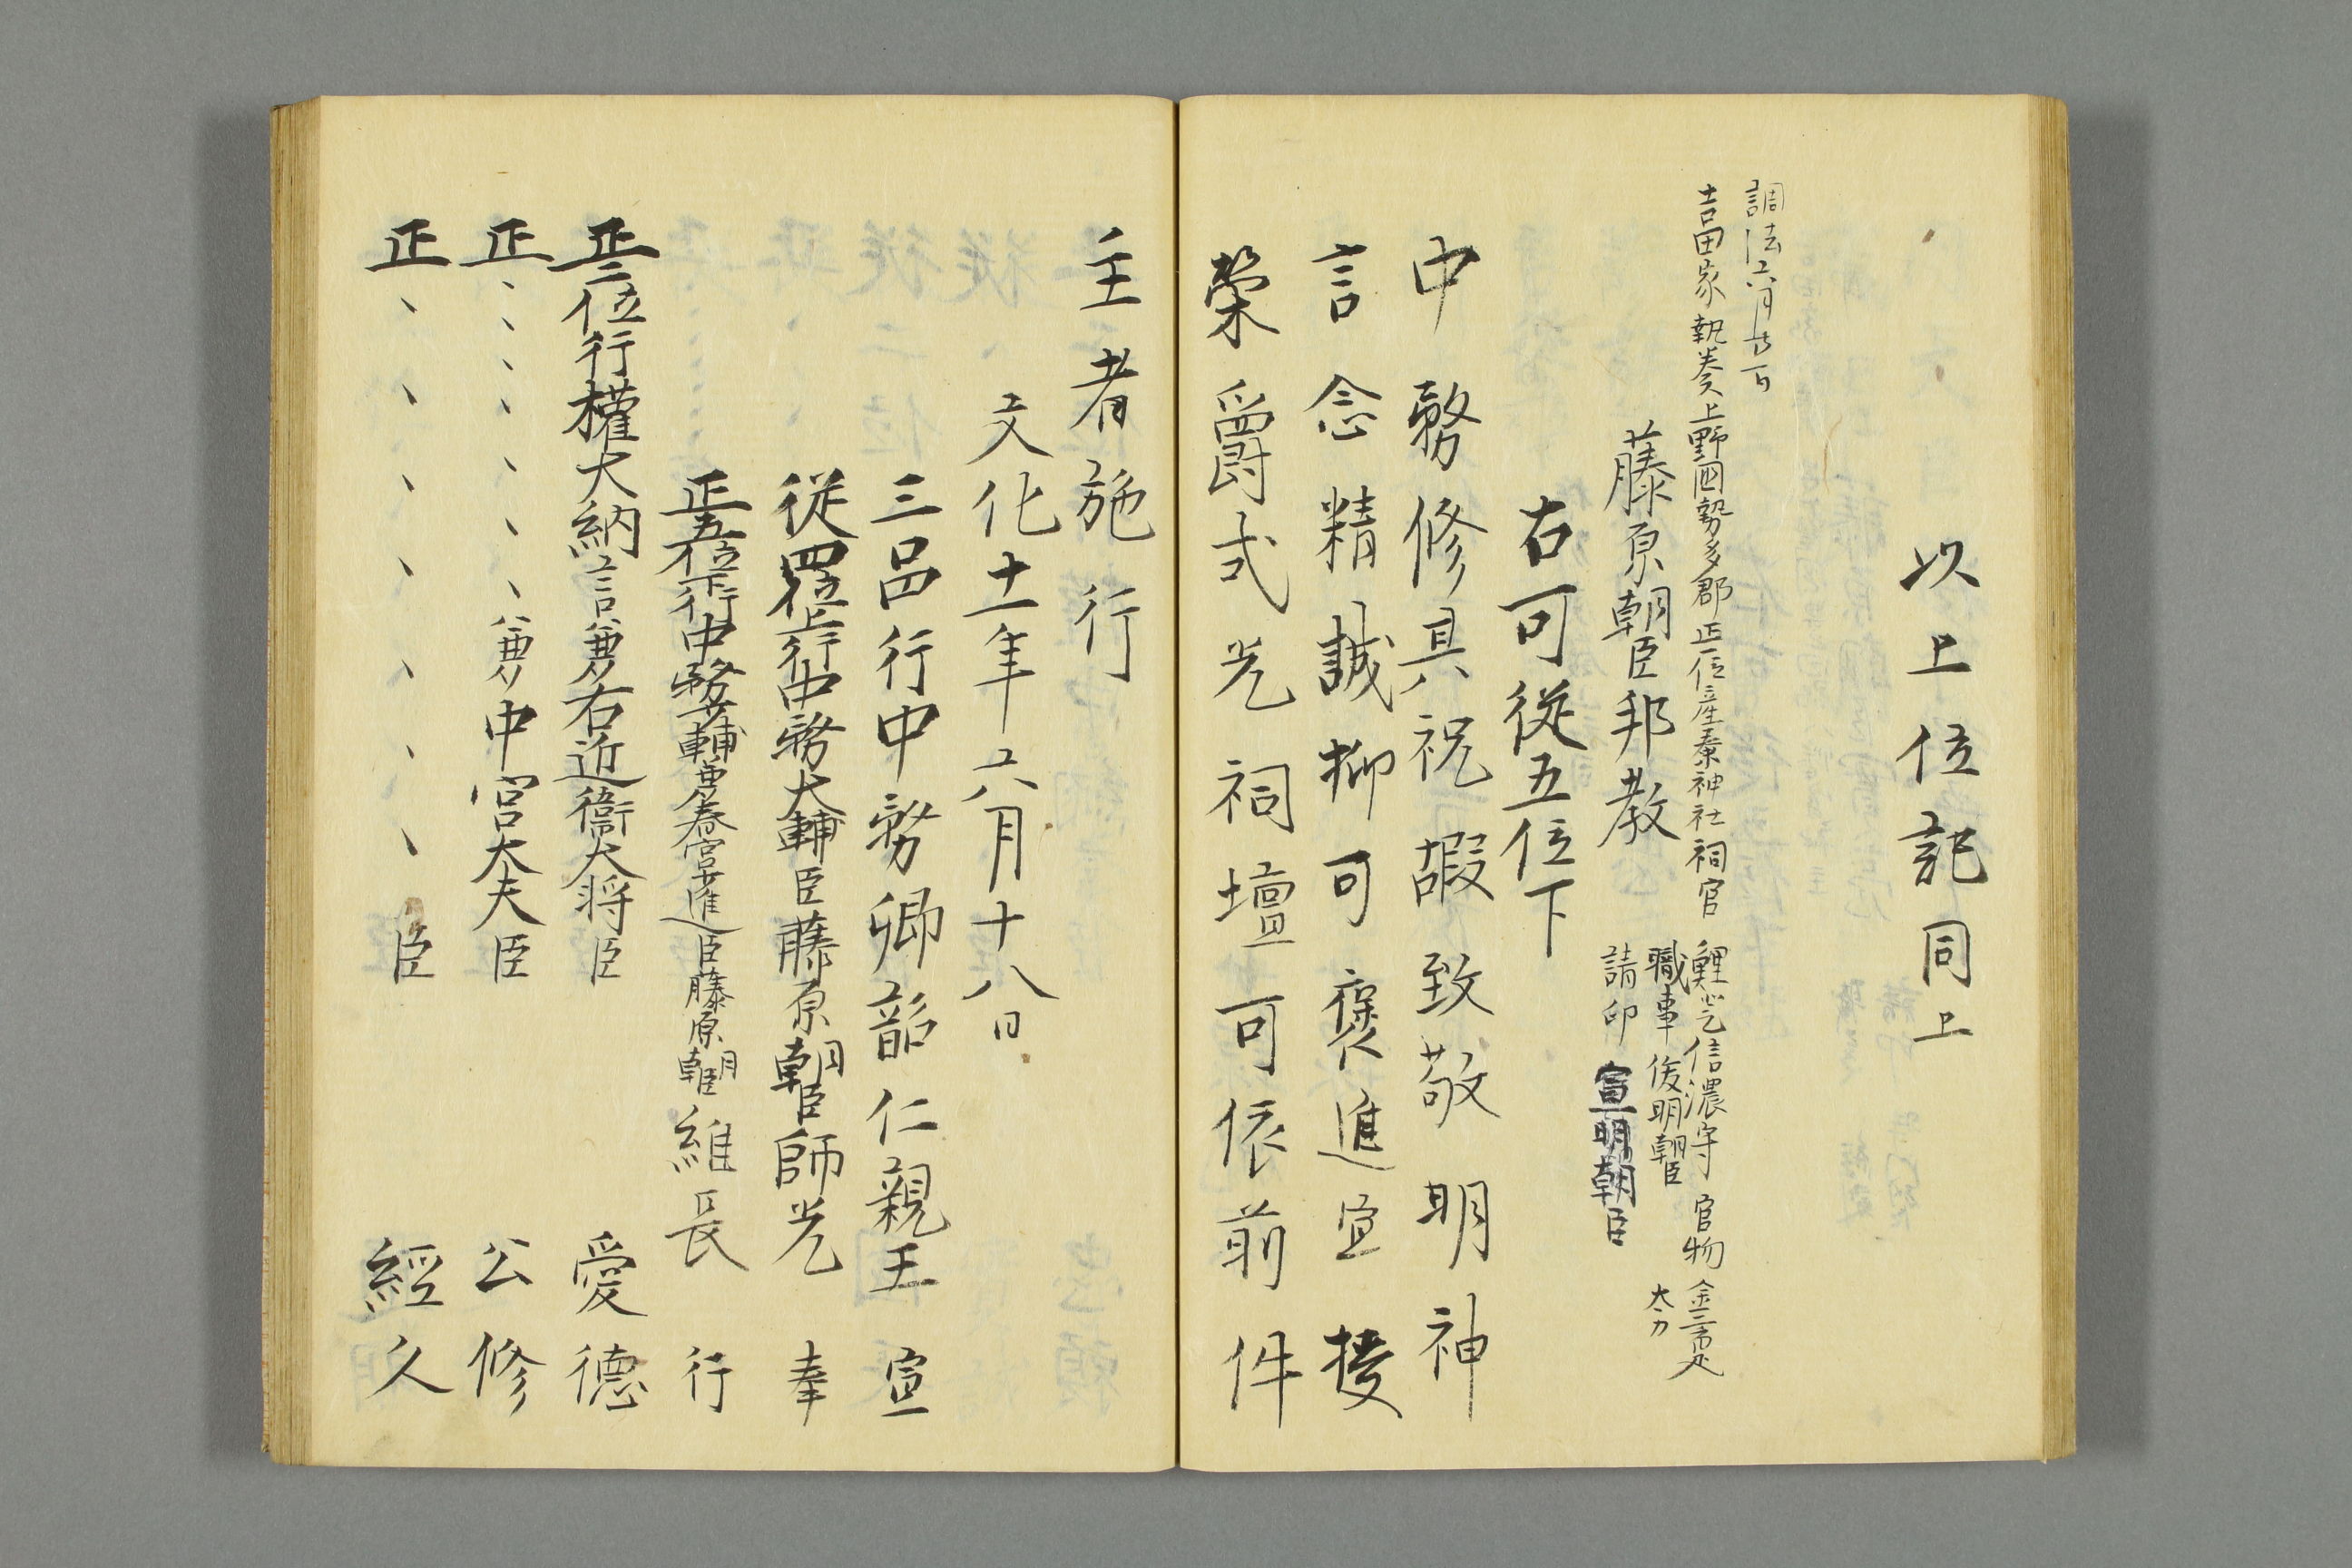 以上位記同上
調法六月廿一日
吉田家執奏上野国勢多郡正一位産泰神社祠官
鯉登信濃守 官物 金壱両二疋
藤原朝臣邦教
職事 俊明朝臣 太刀
請印 宣明朝臣
右可従五位下
中務修具祝嘏致敬明神
言念精誠抑可褒進宜授
栄爵式光祠壇可依前件
主者施行
文化十一年六月十八日
三品行中務卿韶仁親王 宣
従四位上行中務大輔臣藤原朝臣師光 奉
正五位下行中務少輔兼春宮少進臣藤原朝臣維長 行
正二位行権大納言兼右近衛大将臣 愛徳
正、、、、、、兼中宮大夫臣 公修
正、、、、、、、臣 経久